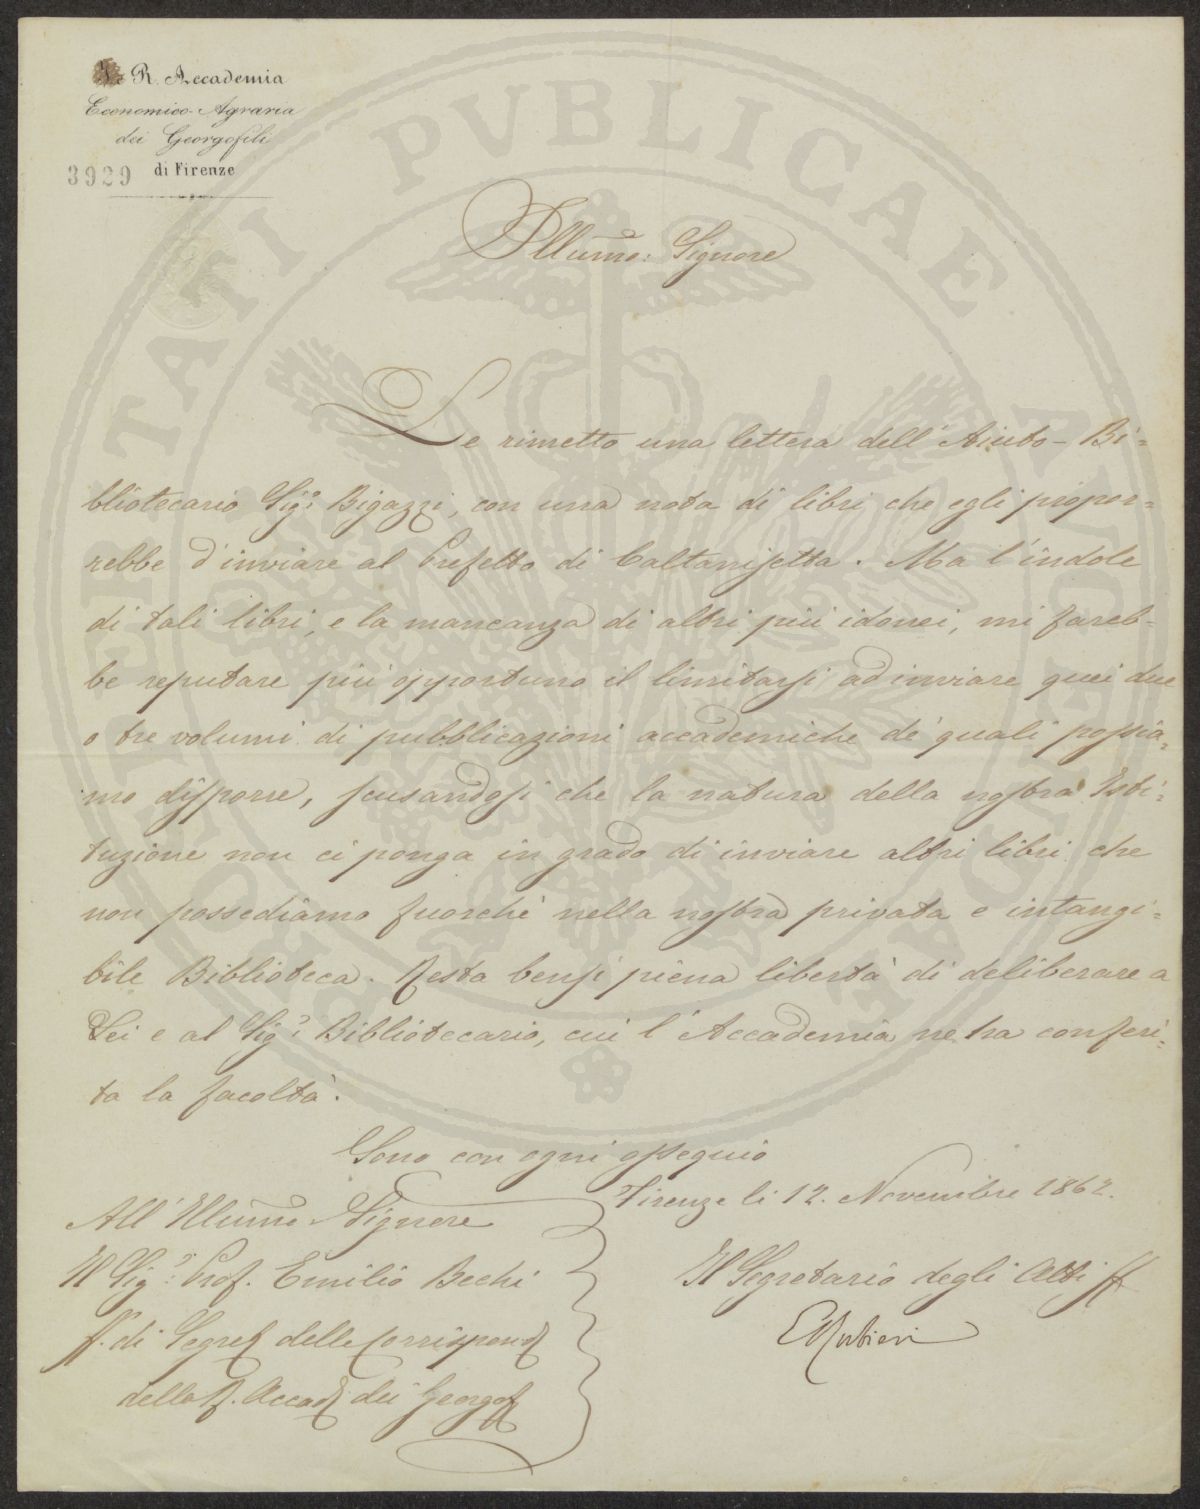 R. Accademia
Economico-Agraria
dei Georgofili
3929 di Firenze
PROSPERITATI PVBLICAE AVGENDAE
Illumo: Signore
Le rimetto una lettera dell'Aiuto-Bi=
bliotecario Sigr: Bigazzi, con una nota di libri che egli propor=
rebbe d'inviare al Prefetto di Caltanisetta. Ma l'indole
di tali libri, e la mancanza di altri più idonei, mi fareb=
be reputare più opportuno il limitarsi ad inviare quei due
o tre volumi di pubblicazioni accademiche de' quali possia=
mo disporre, scusandosi che la natura della nostra Isti=
tuzione non ci ponga in grado di inviare altri libri che
non possediamo fuorchè nella nostra privata e intangi=
bile Biblioteca. Resta bensì piena libertà di deliberare a
Lei e al Sigr: Bibliotecario, cui l'Accademia ne ha conferi=
ta la facoltà.
Sono con ogni ossequio
Firenze li 12. Novembre 1862.
All'Illumo Signore
Il Sigr: Prof. Emilio Bechi
ff. di Segret delle Corrispond
della R. Accad dei Georgof
Il Segretario degli Atti ff